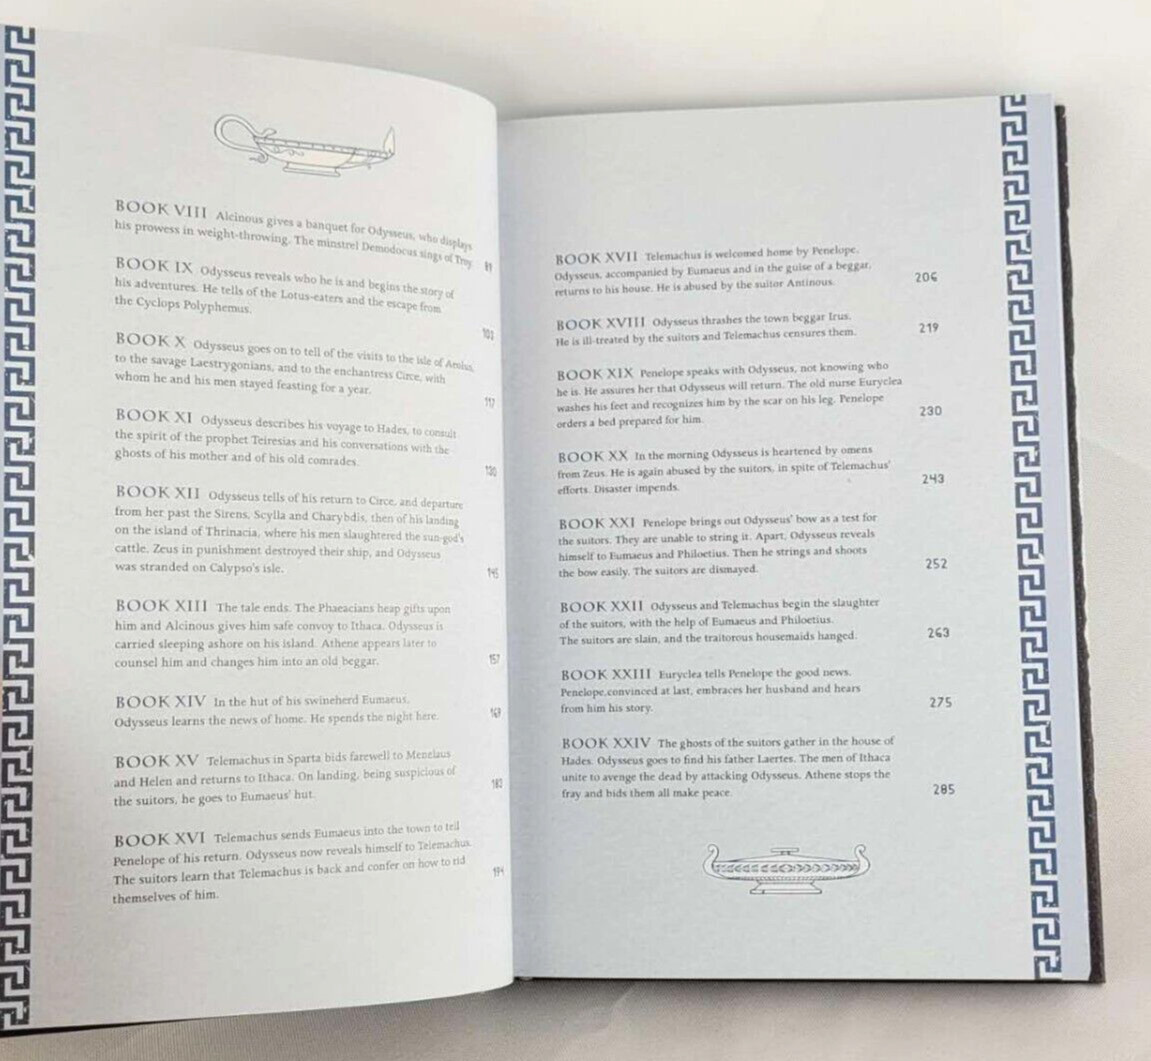 BOOK VIII Alcinous gives a banquet for Odysseus, who displays
his prowess in weight-throwing. The minstrel Demodocus sings of Troy. 89
BOOK IX Odysseus reveals who he is and begins the story of
his adventures. He tells of the Lotus-eaters and the escape from
the Cyclops Polyphemus.
103
BOOK X Odysseus goes on to tell of the visits to the isle of Aeolus,
to the savage Laestrygonians, and to the enchantress Circe, with
whom he and his men stayed feasting for a year.
117
BOOK XI Odysseus describes his voyage to Hades, to consult
the spirit of the prophet Teiresias and his conversations with the
ghosts of his mother and of his old comrades.
130
BOOK XII Odysseus tells of his return to Circe, and departure
from her past the Sirens, Scylla and Charybdis, then of his landing
on the island of Thrinacia, where his men slaughtered the sun-god's
cattle. Zeus in punishment destroyed their ship, and Odysseus
was stranded on Calypso's isle. 145
BOOK XIII The tale ends. The Phaeacians heap gifts upon
him and Alcinous gives him safe convoy to Ithaca. Odysseus is
carried sleeping ashore on his island. Athene appears later to
counsel him and changes him into an old beggar. 157
BOOK XIV In the hut of his swineherd Eumaeus,
Odysseus learns the news of home. He spends the night here. 169
BOOK XV Telemachus in Sparta bids farewell to Menelaus
and Helen and returns to Ithaca. On landing, being suspicious of
the suitors, he goes to Eumaeus' hut. 180
BOOK XVI Telemachus sends Eumaeus into the town to tell
Penelope of his return. Odysseus now reveals himself to Telemachus.
The suitors learn that Telemachus is back and confer on how to rid 194
themselves of him.
BOOK XVII Telemachus is welcomed home by Penelope.
Odysseus, accompanied by Eumaeus and in the guise of a beggar,
returns to his house. He is abused by the suitor Antinous. 206
BOOK XVIII Odysseus thrashes the town beggar Irus.
He is ill-treated by the suitors and Telemachus censures them. 219
BOOK XIX Penelope speaks with Odysseus, not knowing who
he is. He assures her that Odysseus will return. The old nurse Euryclea
washes his feet and recognizes him by the scar on his leg. Penelope
orders a bed prepared for him. 230
BOOK XX In the morning Odysseus is heartened by omens
from Zeus. He is again abused by the suitors, in spite of Telemachus'
efforts. Disaster impends. 243
BOOK XXI Penelope brings out Odysseus' bow as a test for
the suitors. They are unable to string it. Apart, Odysseus reveals
himself to Eumaeus and Philoetius. Then he strings and shoots
the bow easily. The suitors are dismayed. 252
BOOK XXII Odysseus and Telemachus begin the slaughter
of the suitors, with the help of Eumaeus and Philoetius.
The suitors are slain, and the traitorous housemaids hanged. 263
BOOK XXIII Euryclea tells Penelope the good news.
Penelope, convinced at last, embraces her husband and hears
from him his story. 275
BOOK XXIV The ghosts of the suitors gather in the house of
Hades. Odysseus goes to find his father Laertes. The men of Ithaca
unite to avenge the dead by attacking Odysseus. Athene stops the
fray and bids them all make peace. 285